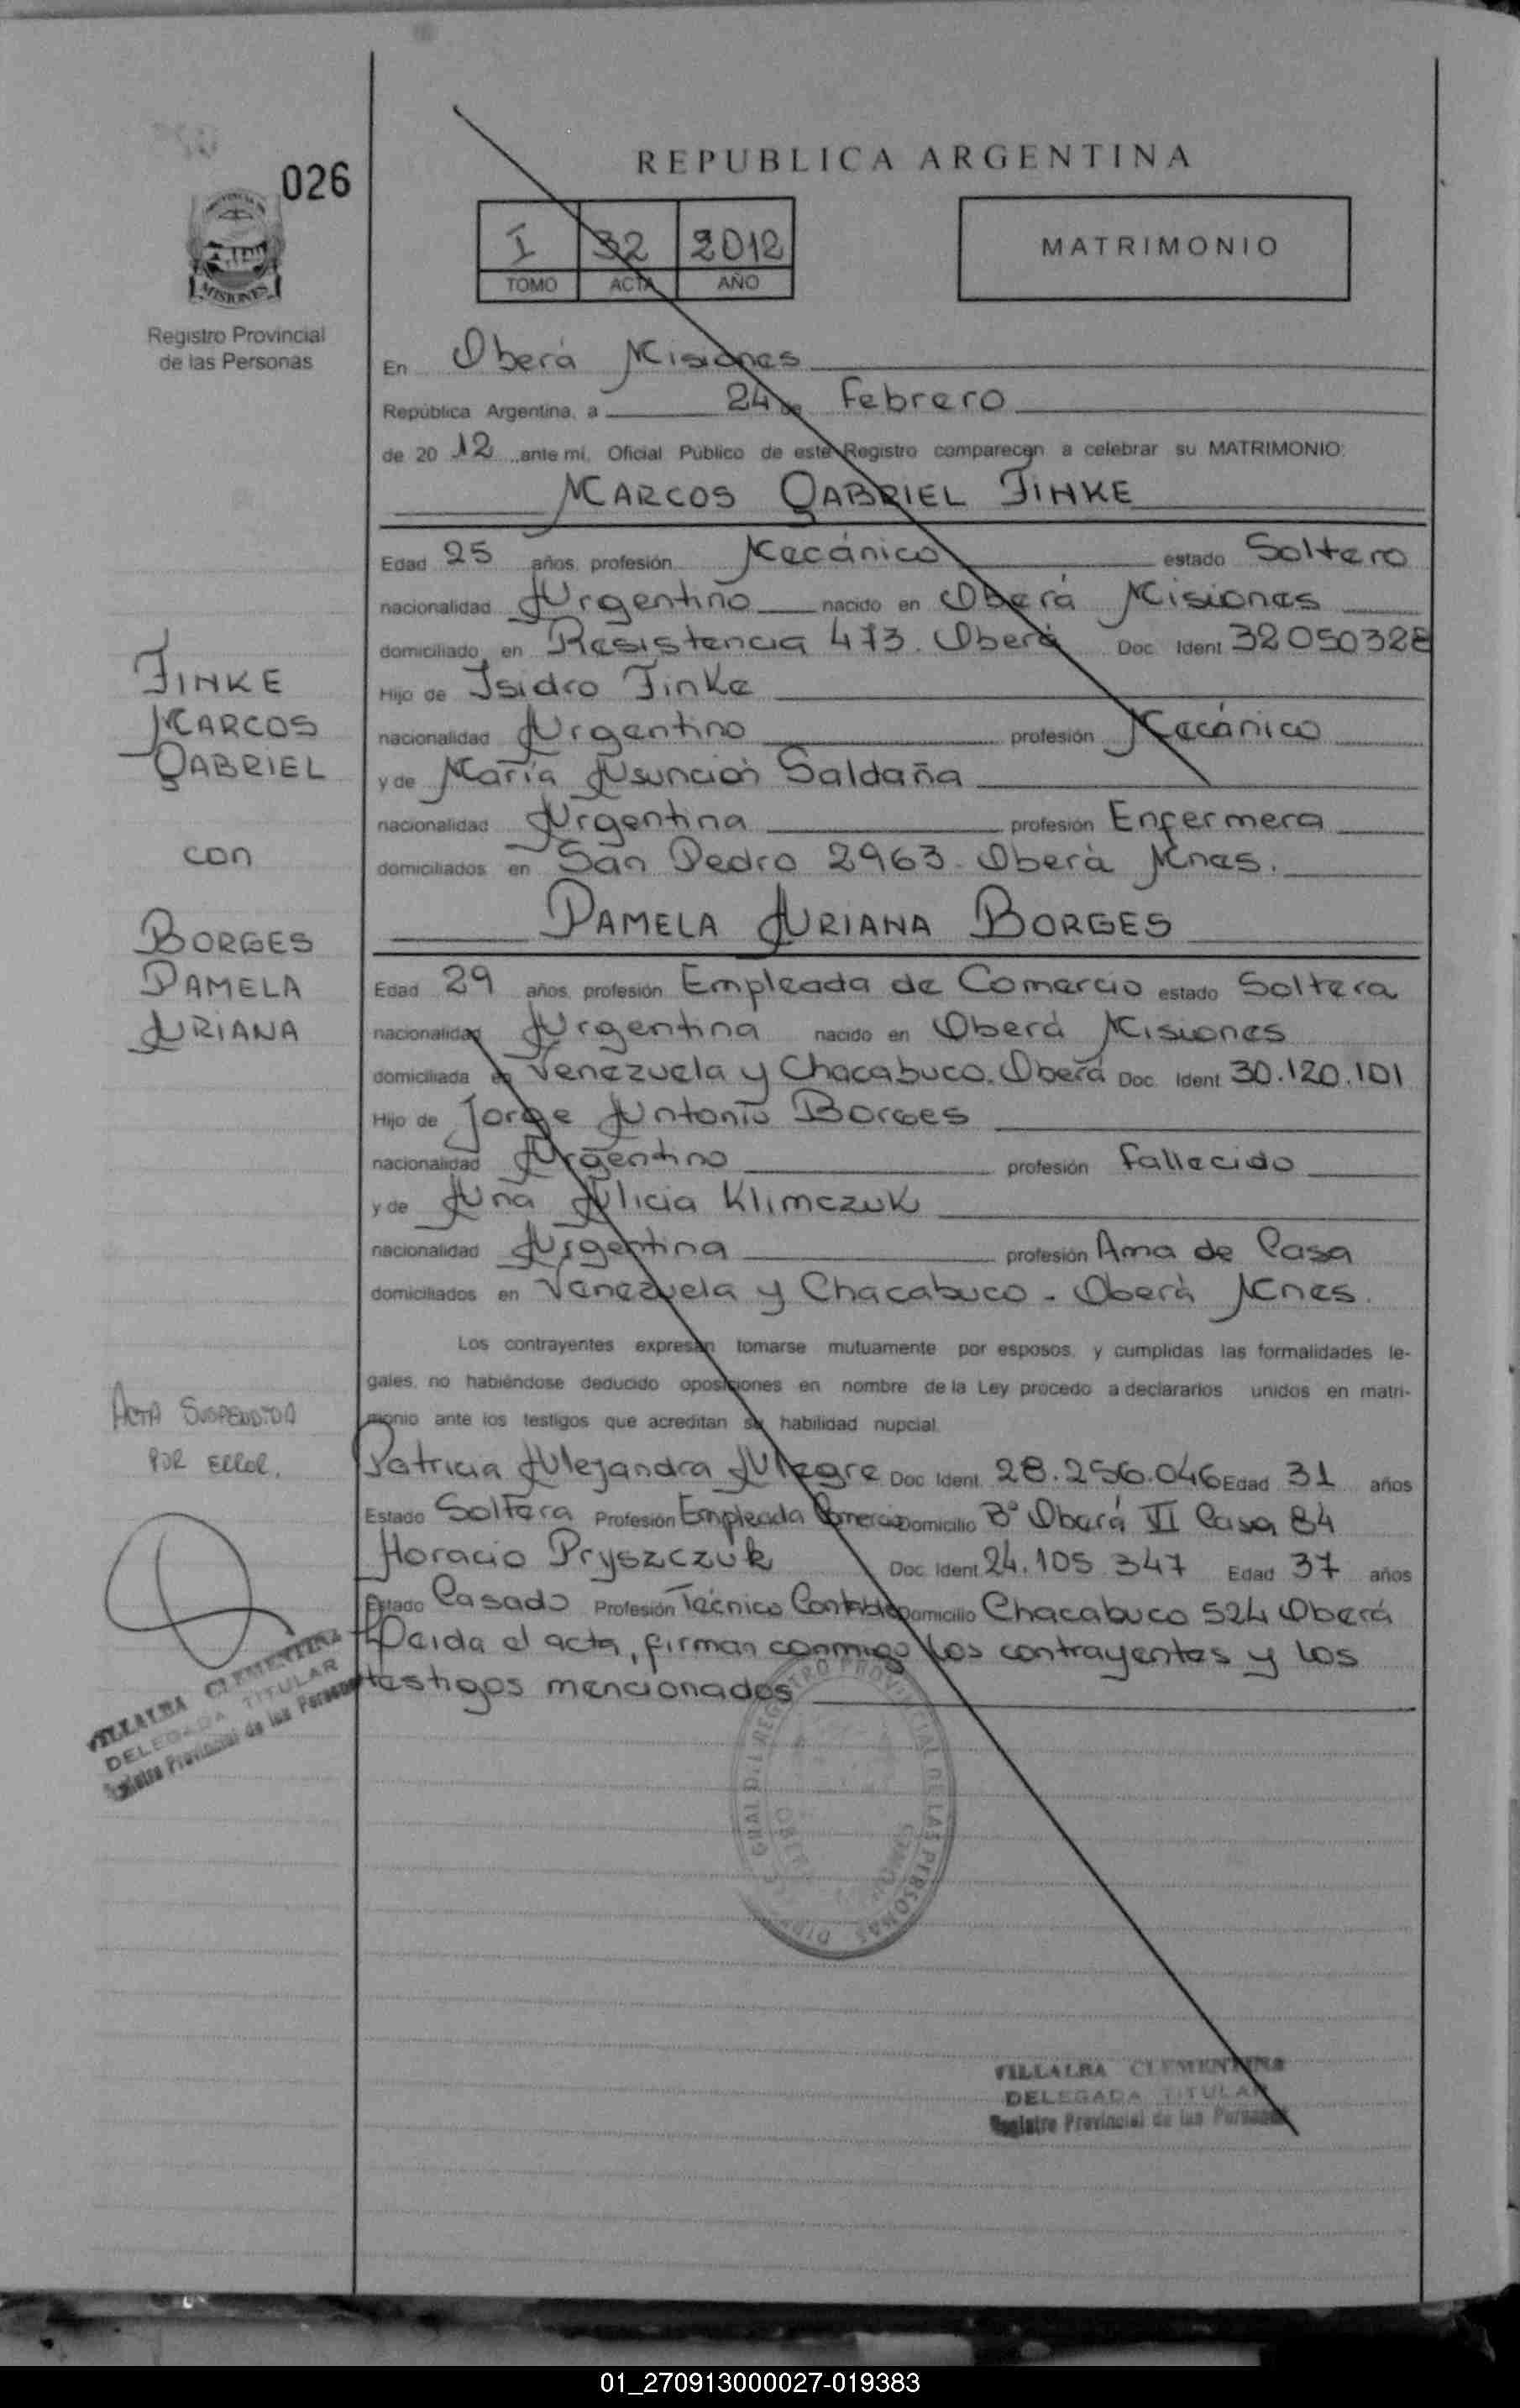 026
MISIONES
Registro Provincial
de las Personas
REPUBLICA ARGENTINA
I 32 2012
TOMO ACTA AÑO
MATRIMONIO
En Oberá Misiones
República Argentina, a 24 de Febrero
de 20 12 ante mi, Oficial Público de este Registro comparecen a celebrar su MATRIMONIO:
MARCOS GABRIEL FINKE
Edad 25 años, profesión Mecánico estado Soltero
nacionalidad Argentino nacido en Oberá Misiones
domiciliado en Resistencia 473. Oberá Doc. Ident 32050328
Hijo de Isidro Finke
nacionalidad Argentino profesión Mecánico
y de María Asunción Saldaña
nacionalidad Argentina profesión Enfermera
domiciliados en San Pedro 2963 - Oberá Mnes.
PAMELA ARIANA BORGES
Edad 29 años, profesión Empleada de Comercio estado Soltera
nacionalidad Argentina nacido en Oberá Misiones
domiciliada en Venezuela y Chacabuco. Oberá Doc. Ident 30.120.101
Hijo de Jorge Antonio Borges
nacionalidad Argentino profesión Fallecido
y de Ana Alicia Klimczuk
nacionalidad Argentina profesión Ama de Casa
domiciliados en Venezuela y Chacabuco - Oberá Mnes.
Los contrayentes expresan tomarse mutuamente por esposos, y cumplidas las formalidades le-
gales, no habiéndose deducido oposiciones en nombre de la Ley procedo a declararlos unidos en matri-
monio ante los testigos que acreditan su habilidad nupcial.
Patricia Alejandra Alegre Doc. Ident. 28.256.046 Edad 31 años
Estado Soltera Profesión Empleada Comercio Domicilio Bº Oberá VI Casa 84
Horacio Pryszczuk Doc. Ident 24.105.347 Edad 37 años
Estado Casado Profesión Técnico Contable Domicilio Chacabuco 524 Oberá
Leida el acta, firman conmigo los contrayentes y los
testigos mencionados
FINKE
MARCOS
GABRIEL
con
BORGES
PAMELA
ARIANA
ACTA SUSPENDIDA
POR ERROR.
VILLALBA CLEMENTINA
DELEGADA TITULAR
Registro Provincial de las Personas
REGISTRO PROVINCIAL DE LAS PERSONAS
VILLALBA CLEMENTINA
DELEGADA TITULAR
Registro Provincial de las Personas
01_270913000027-019383